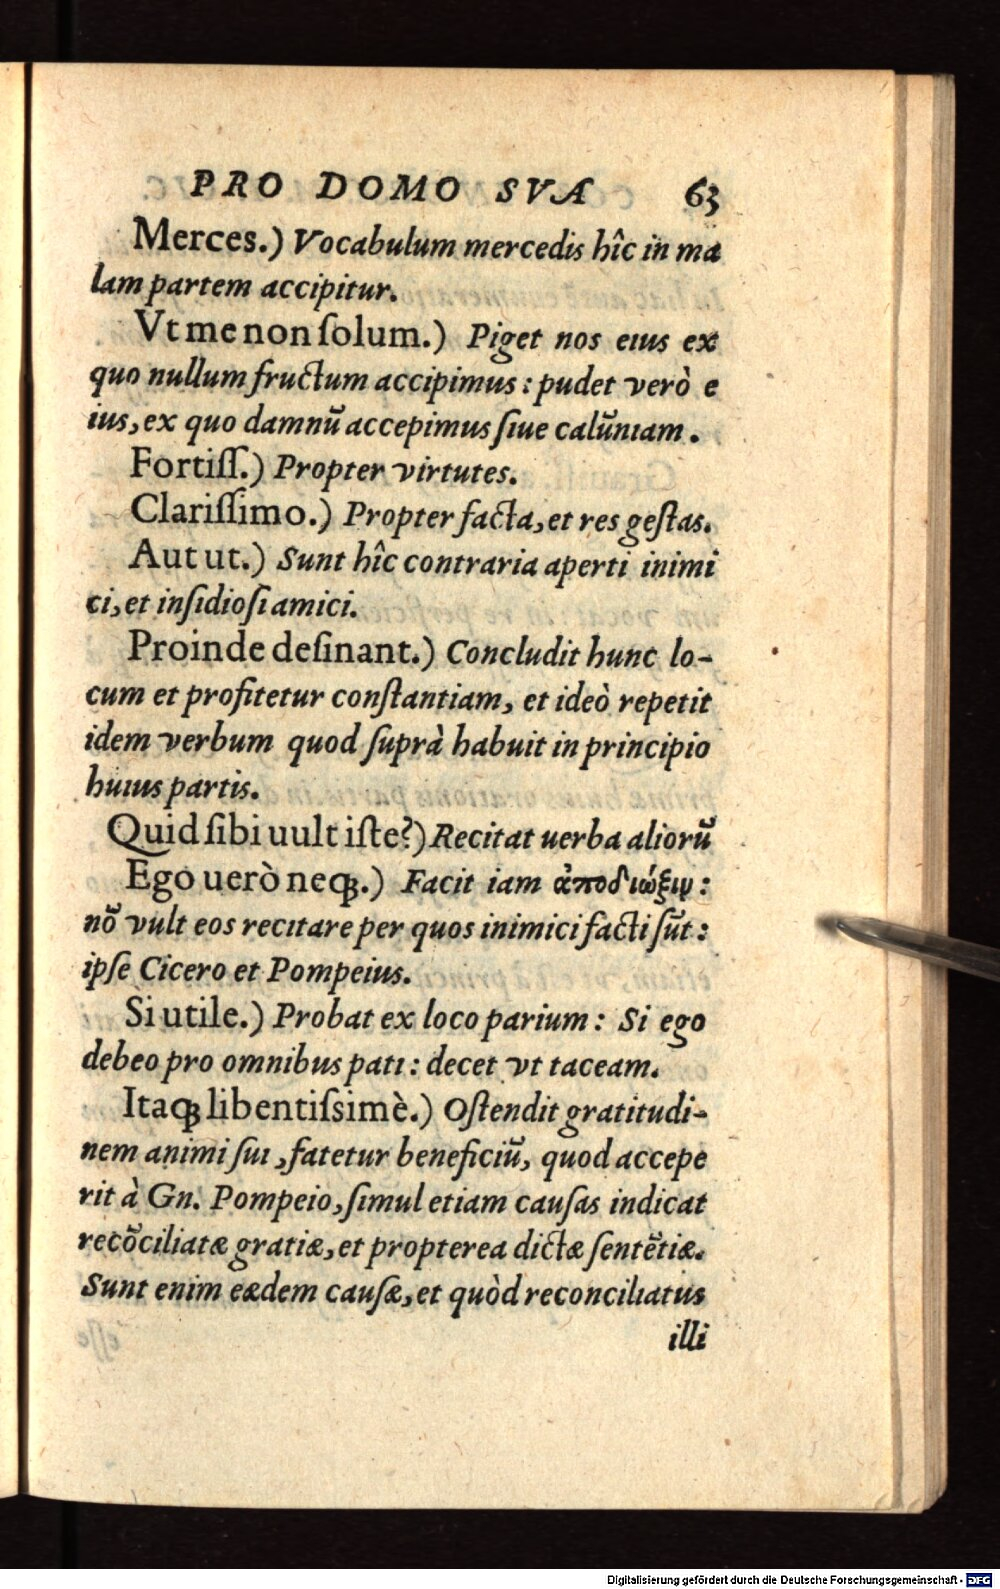 PRO DOMO SVA 63
Merces.) Vocabulum mercedis hîc in ma
lam partem accipitur.
Vt me non ſolum.) Piget nos eius ex
quo nullum fructum accipimus: pudet verò e
ius, ex quo damnũ accepimus ſiue calũniam.
Fortiſſ.) Propter virtutes.
Clariſſimo.) Propter facta, et res geſtas.
Aut ut.) Sunt hîc contraria aperti inimi
ci, et inſidioſi amici.
Proinde deſinant.) Concludit hunc lo-
cum et profitetur conſtantiam, et ideò repetit
idem verbum quod ſuprà habuit in principio
huius partis.
Quid ſibi uult iſte?) Recitat uerba aliorũ
Ego uerò neq́;.) Facit iam ἀποδίωξιν:
nõ vult eos recitare per quos inimici facti ſũt:
ipſe Cicero et Pompeius.
Si utile.) Probat ex loco parium: Si ego
debeo pro omnibus pati: decet vt taceam.
Itaq; libentiſsimè.) Oſtendit gratitudi-
nem animi ſui, fatetur beneficiũ, quod accepe
rit à Gn. Pompeio, ſimul etiam cauſas indicat
recõciliatæ gratiæ, et propterea dictæ ſentẽtiæ.
Sunt enim eædem cauſæ, et quòd reconciliatus
illi
Digitalisierung gefördert durch die Deutsche Forschungsgemeinschaft - DFG